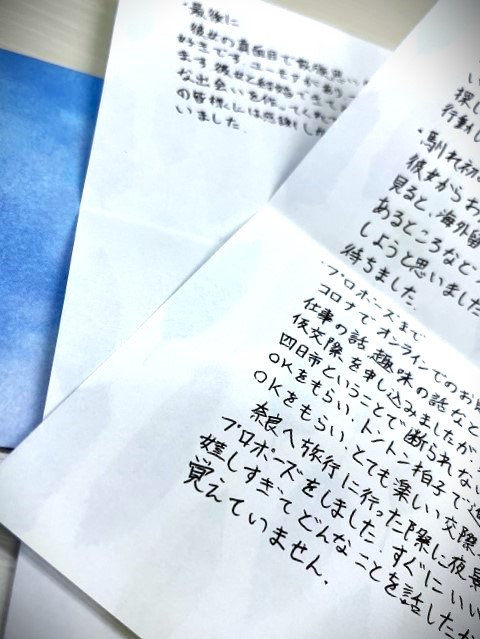 ・最後に
彼女の真面目で
好きです。ユーモアがあり
ます。彼女と結婚できて
な出会いを作ってくれた
の皆様には感謝しか
いました。
い
探し
行動し
・馴れ初め
彼女からお
見ると、海外留
あるところなど
しようと思いました
待ちました。
・プロポーズまで
コロナでオンラインでのお見
仕事の話、趣味の話など
仮交際を申し込みましたが、
四日市ということで断られない
OKをもらい、トントン拍子で進
OKをもらい、とても楽しい交際
奈良へ旅行に行った際に夜景
プロポーズをしました。すぐにいい
嬉しすぎてどんなことを話したか
覚えていません。